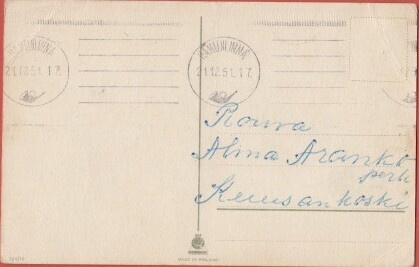 HÄMEENLINNA
21.12.51.17.
HÄMEENLINNA
21.12.51.17.
Rouva
Alma Aranko
perh
Kuusankoski
MADE IN FINLAND